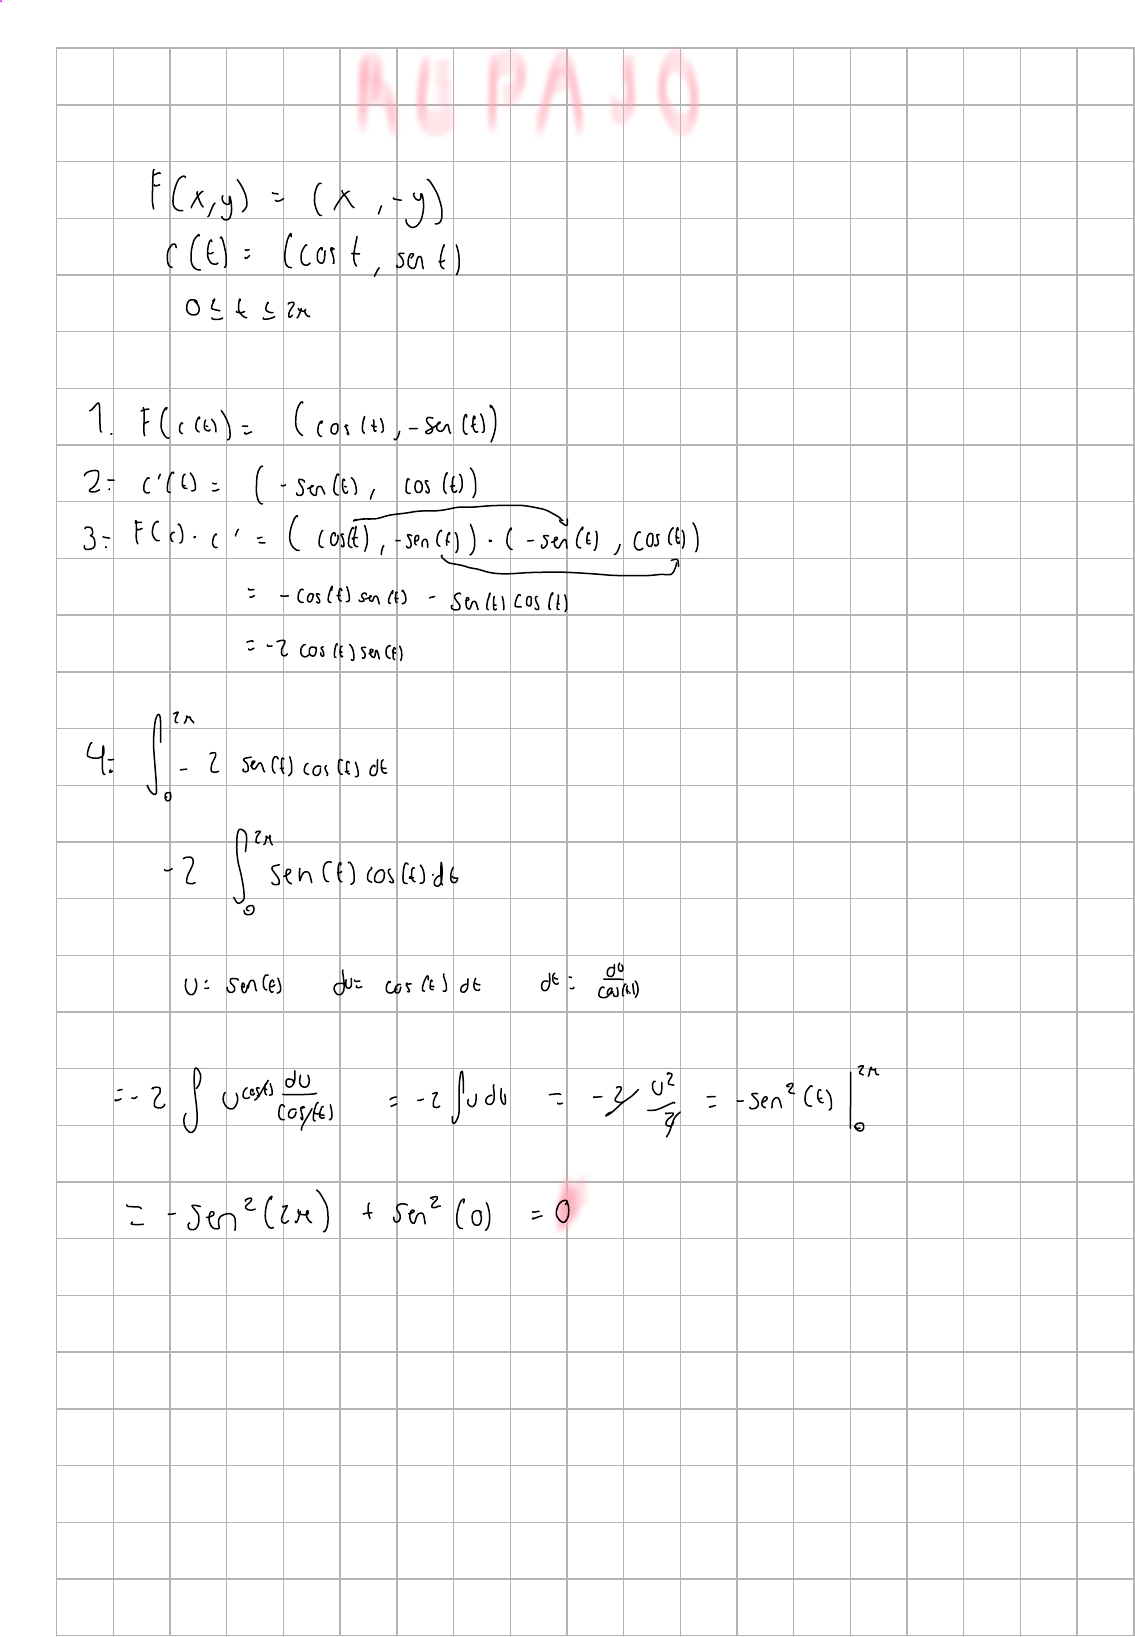 RUPAJO
F(x,y) = (x ,-y)
c(t) = (cos t, sen t)
0 ≤ t ≤ 2π
1. F(c(t)) = (cos(t), -sen(t))
2.- c'(t) = (-sen(t), cos(t))
3.- F(c) · c' = (cos(t), -sen(t)) · (-sen(t), cos(t))
= -cos(t) sen(t) - sen(t) cos(t)
= -2 cos(t) sen(t)
4.- ∫₀^2π -2 sen(t) cos(t) dt
-2 ∫₀^2π sen(t) cos(t)·dt
u = sen(t) du = cos(t) dt dt = du/cos(t)
= -2 ∫ u cos(t) du/cos(t) = -2 ∫ u du = -2 u²/2 = -sen²(t) |₀^2π
= -sen²(2π) + sen²(0) = 0